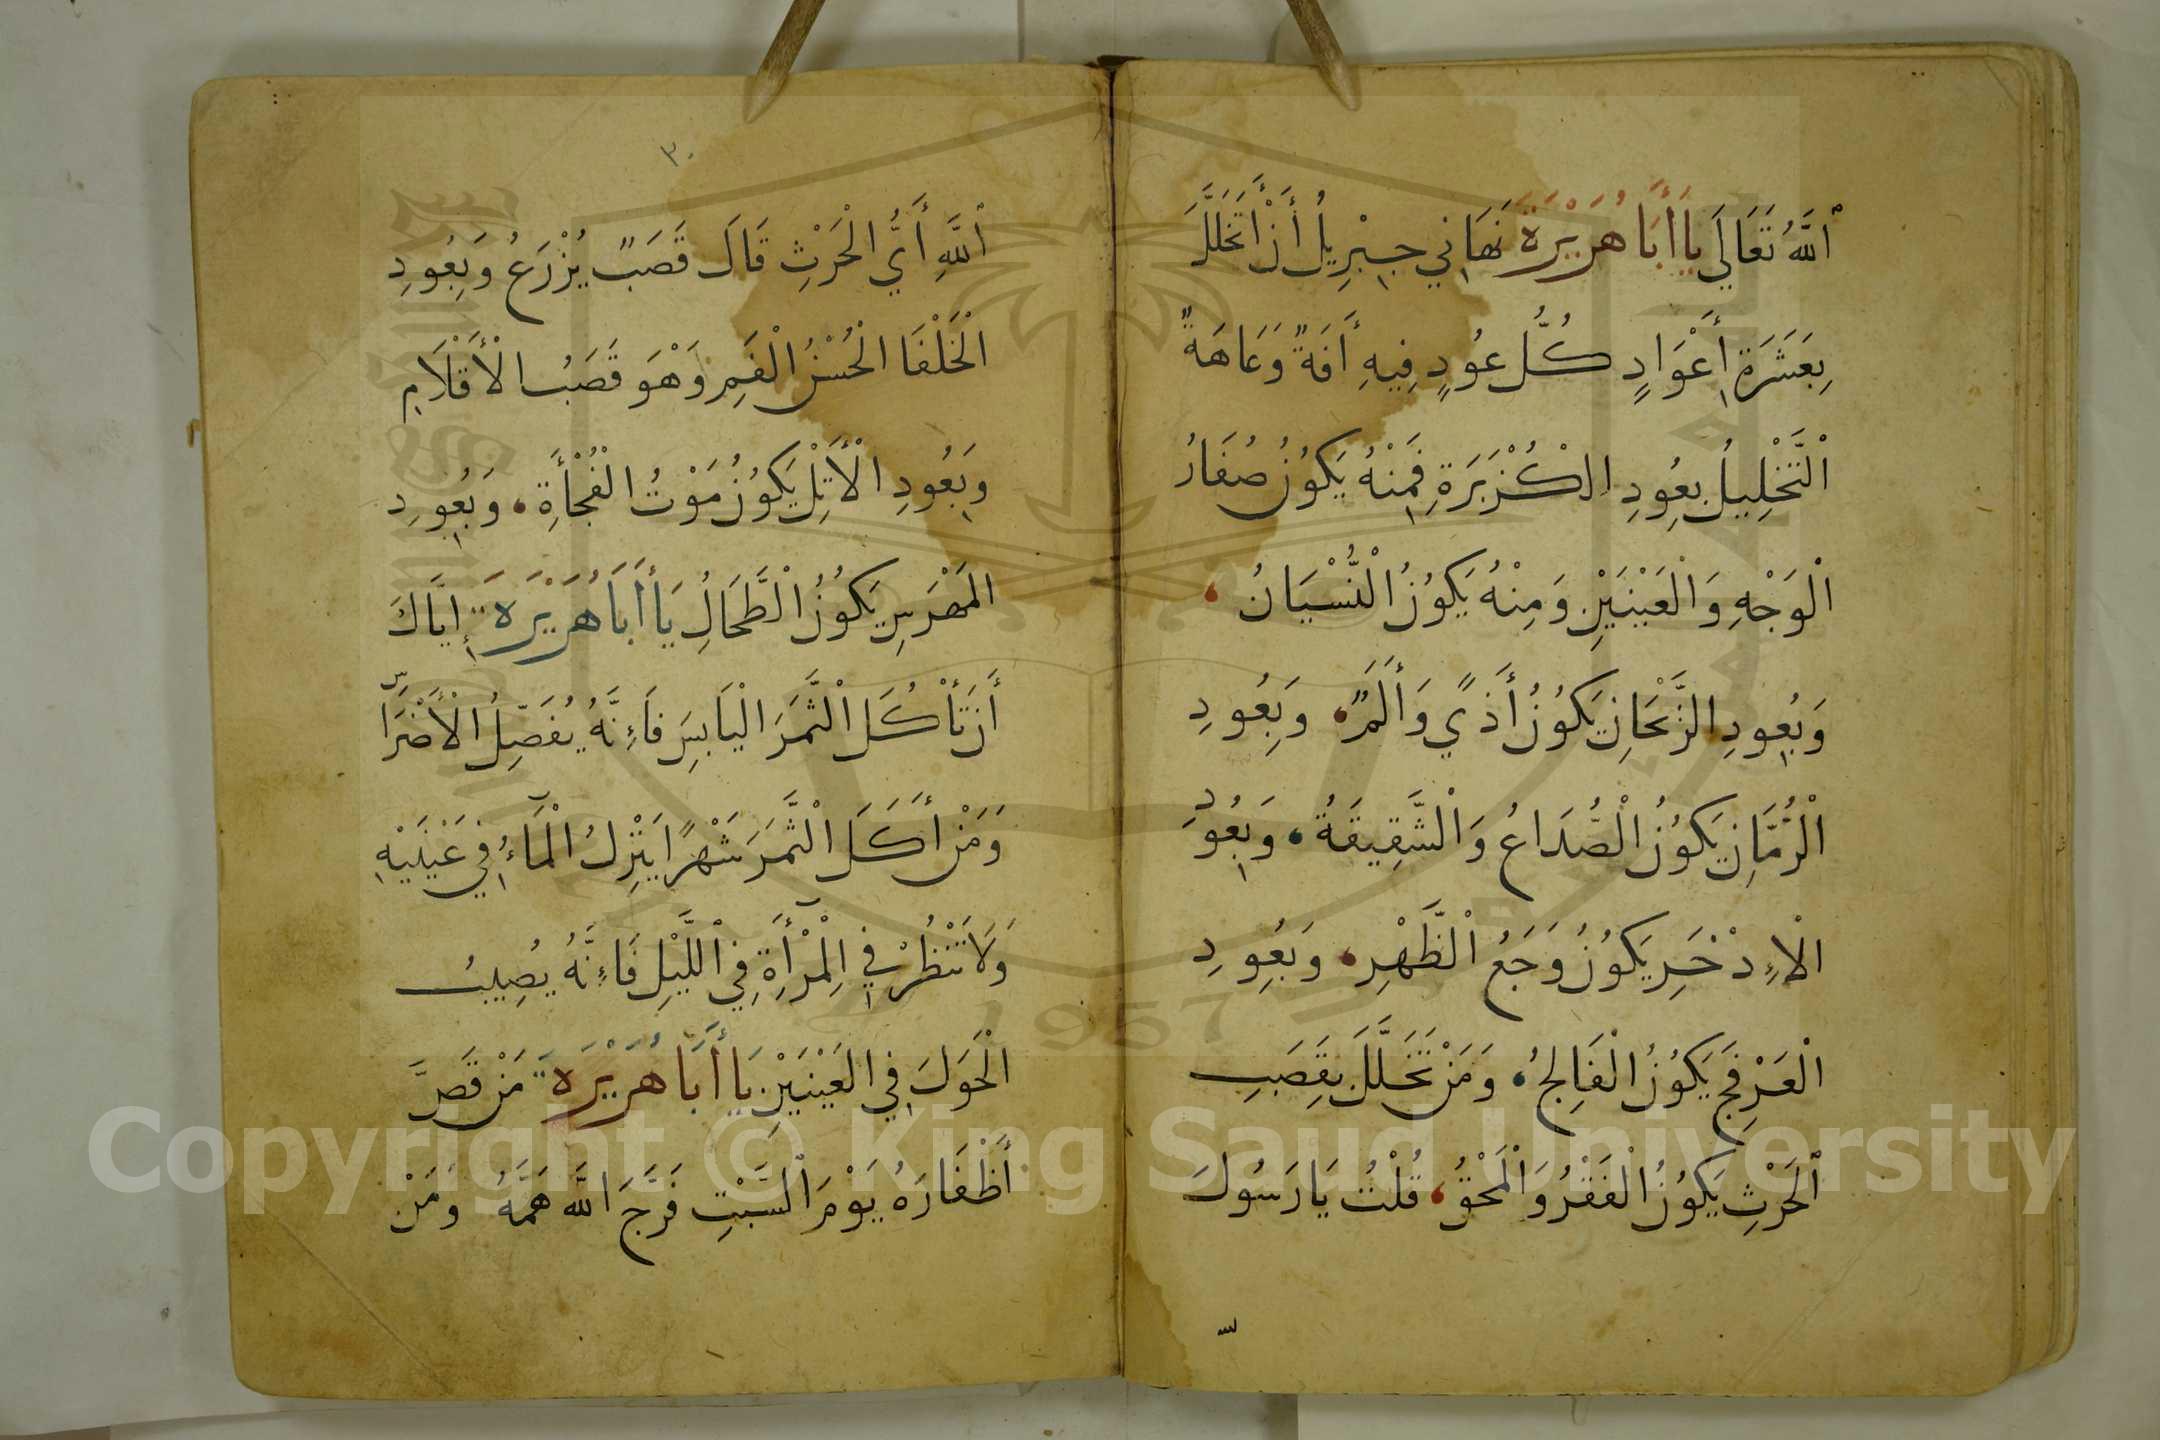 اللَّهُ تَعَالَي يَا أَبَا هُرَيْرَة نَهَانِي جِبْرِيلُ أَنْ أَتَخَلَّلَ
بِعَشَرَةِ أَعْوَادٍ كُلُّ عُودٍ فِيهِ أَفَةٌ وَعَاهَةٌ
الْتَّخْلِيلُ بِعُودِ الْكُزْبَرَةِ فَمِنْهُ يَكُونُ صُفَارُ
الْوَجْهِ وَالْعَيْنَيْنِ وَمِنْهُ يَكُوُنُ الْنُّسْيَانُ
وَبِعُودِ الرَّيْحَانِ يَكُوُنُ أَذًي وَأَلَمٌ وَبِعُودِ
الْرُّمَّانِ يَكُوُنُ الْصُّدَاعُ وَالْشَّقِيقَةُ وَبِعُودِ
الْإِذْخَرِ يَكُوُنُ وَجَعُ الْظَّهْرِ وَبِعُودِ
الْعَرْفَجِ يَكُوُنُ الْفَالِجُ وَمَنْ تَخَلَّلَ بِقَصَبِ
الْحَرْثِ يَكُوُنُ الْفَقْرُ وَالْمَحْقُ قُلْتُ يَا رَسُولَ
اللَّهِ أَيُّ الْحَرْثِ قَالَ قَصَبٌ يُزْرَعُ وَبِعُودِ
الْخَلْفَا الْحُسْنُ الْفَمِ وَهْوَ قَصَبُ الْأَقْلَامِ
وَبِعُودِ الْأَثْلِ يَكُوُنُ مَوْتُ الْفُجْأَةِ وَبِعُودِ
المَهْرَسِ يَكُوُنُ الْطَّحَالِ يَا أَبَا هُرَيْرَة إِيَّاكَ
أَنْ تَأْكُلَ الْثَّمَرَ الْيَابِسَ فَإِنَّهُ يُفَصِّلُ الْأَضْرَاسَ
وَمَنْ أَكَلَ الْثَّمَرَ شَهْرًا يَنْزِلُ الْمَآءُ فِي عَيْنَيْهِ
وَلَا تَنْظُرْ فِي الْمِرْأَةِ فِي الْلَّيْلِ فَإِنَّهُ يُصِيبُ
الْحَوَلَ فِي العَيْنَيْنِ يَا أَبَا هُرَيْرَة مَنْ قَصَّ
أَظْفَارَهُ يَوْمَ الْسَّبْتِ فَرَّجَ اللَّه هَمَّهُ وَمَنْ
٣٠
Copyright © King Saud University
1957